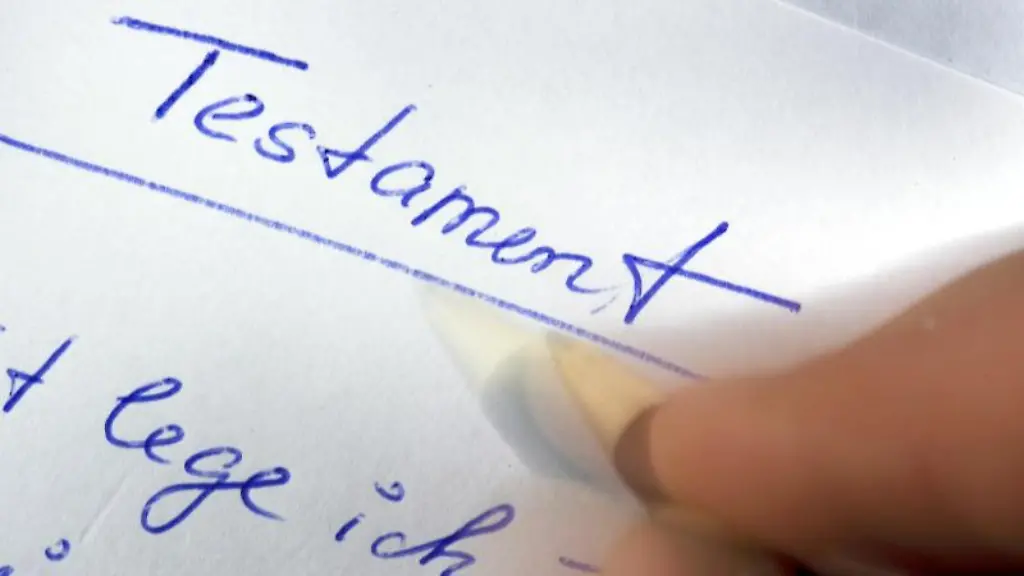 Testament
lege ich